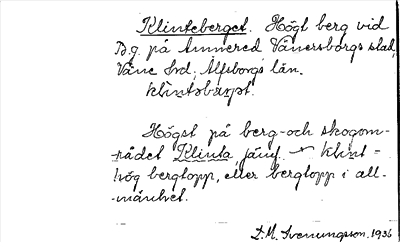 Klinteberget. Högt berg vid
B.g. på Annered Vänersborgs stad,
Väne hrd, Älfsborgs län.
klintəbærjət.
Högst på berg- och skogom-
rådet Klinta, jämf. klint =
hög bergtopp, eller bergtopp i all-
mänhet.
L.M. Svenungsson, 1936